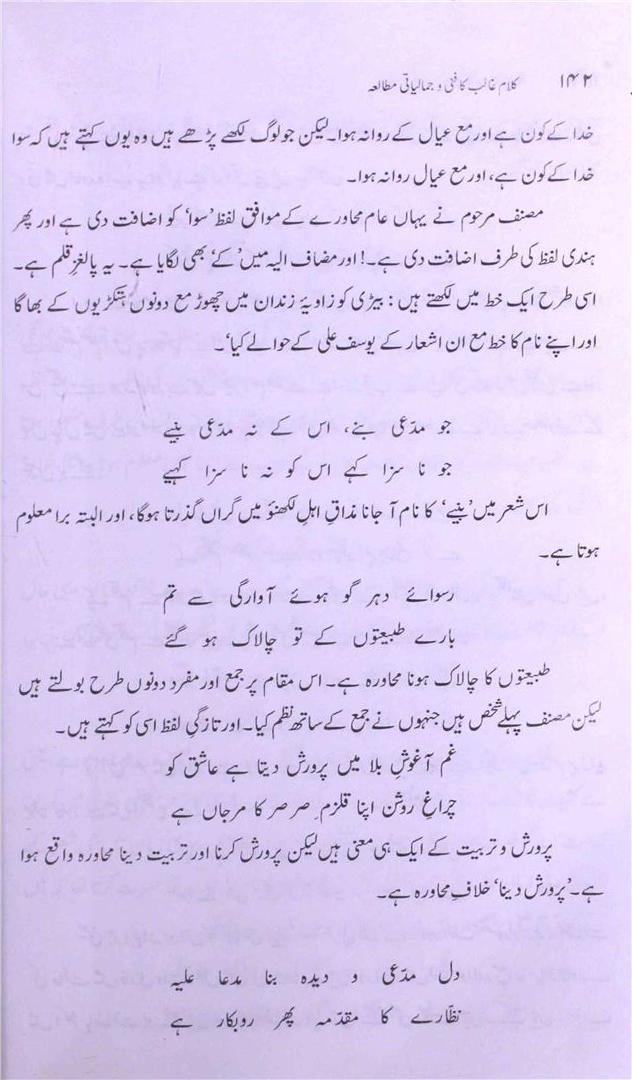 ۱۴۲ کلام غالب کا فنی و جمالیاتی مطالعہ
خدا کے کون ہے اور مع عیال کے روانہ ہوا۔ لیکن جو لوگ لکھے پڑھے ہیں وہ یوں کہتے ہیں کہ سوا
خدا کے کون ہے، اور مع عیال روانہ ہوا۔
مصنف مرحوم نے یہاں عام محاورے کے موافق لفظ ’سوا‘ کو اضافت دی ہے اور پھر
ہندی لفظ کی طرف اضافت دی ہے۔! اور مضاف الیہ میں ’کے‘ بھی لگایا ہے۔ یہ پالغزِ قلم ہے۔
اسی طرح ایک خط میں لکھتے ہیں: بیڑی کو زاویۂ زندان میں چھوڑ مع دونوں ہتکڑیوں کے بھاگا
اور اپنے نام کا خط مع ان اشعار کے یوسف علی کے حوالے کیا‘۔
جو مدّعی بنے، اس کے نہ مدّعی بنیے
جو نا سزا کہے اس کو نہ نا سزا کہیے
اس شعر میں ’بنیے‘ کا نام آ جانا مذاقِ اہلِ لکھنؤ میں گراں گذرتا ہوگا، اور البتہ برا معلوم
ہوتا ہے۔
رسوائے دہر گو ہوئے آوارگی سے تم
بارے طبیعتوں کے تو چالاک ہو گئے
طبیعتوں کا چالاک ہونا محاورہ ہے۔ اس مقام پر جمع اور مفرد دونوں طرح بولتے ہیں
لیکن مصنف پہلے شخص ہیں جنہوں نے جمع کے ساتھ نظم کیا۔ اور تازگیِ لفظ اسی کو کہتے ہیں۔
غم آغوشِ بلا میں پرورش دیتا ہے عاشق کو
چراغِ روشن اپنا قلزمِ صرصر کا مرجاں ہے
پرورش و تربیت کے ایک ہی معنی ہیں لیکن پرورش کرنا اور تربیت دینا محاورہ واقع ہوا
ہے۔ ’پرورش دینا‘ خلافِ محاورہ ہے۔
دل مدّعی و دیدہ بنا مدعا علیہ
نظّارے کا مقدّمہ پھر روبکار ہے